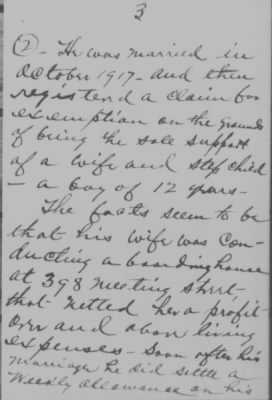 3
(2) - He was married in
October 1917 - and then
registerd a claim for
exemption on the grounds
of being the sole support
of a wife and step child
- a boy of 12 years -
The facts seem to be
that his wife was con-
ducting a boardinghouse
at 398 Meeting Street,
that netted her a profit
over and above living
expenses - Soon after his
marriage he did settle a
Weekly allowance on his